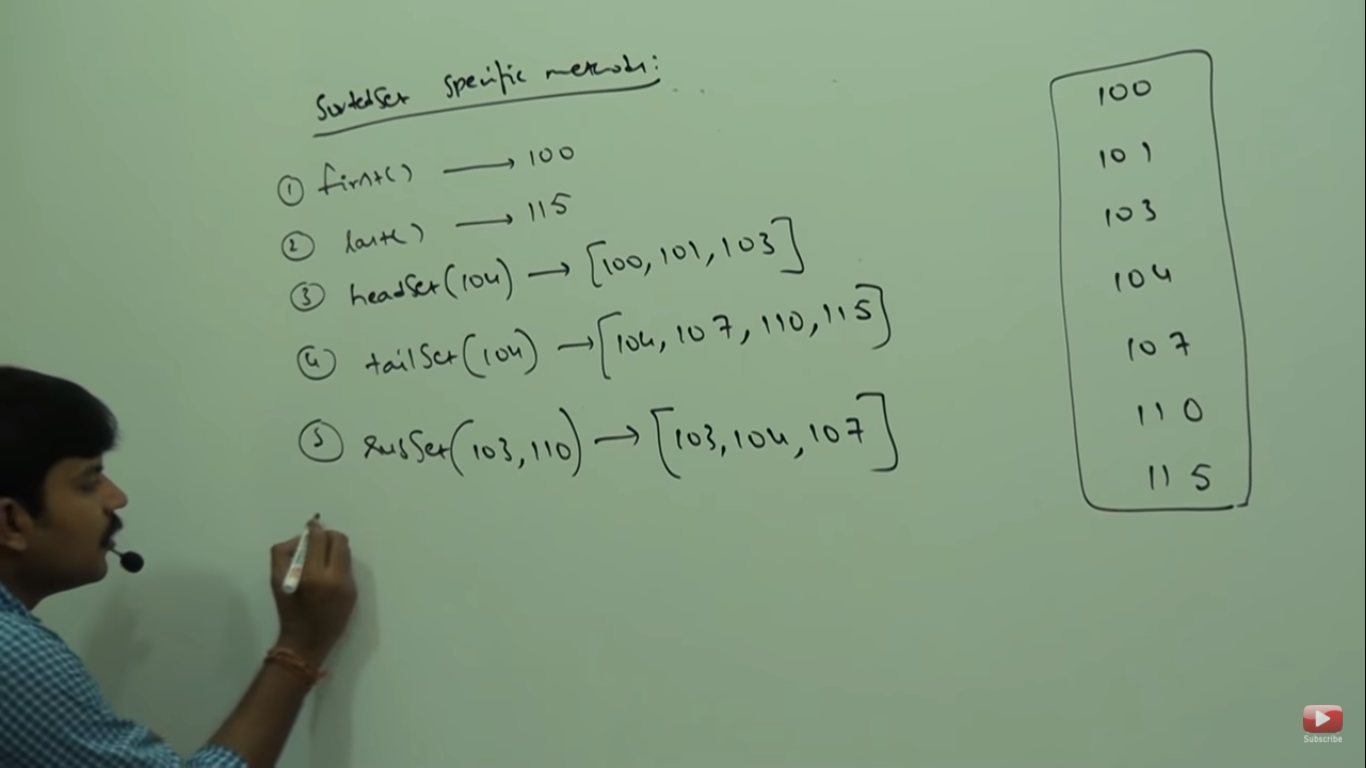 SortedSet specific methods:
① first() → 100
② last() → 115
③ headSet(104) → [100, 101, 103]
④ tailSet(104) → [104, 107, 110, 115]
⑤ subSet(103, 110) → [103, 104, 107]
100
101
103
104
107
110
115
Subscribe